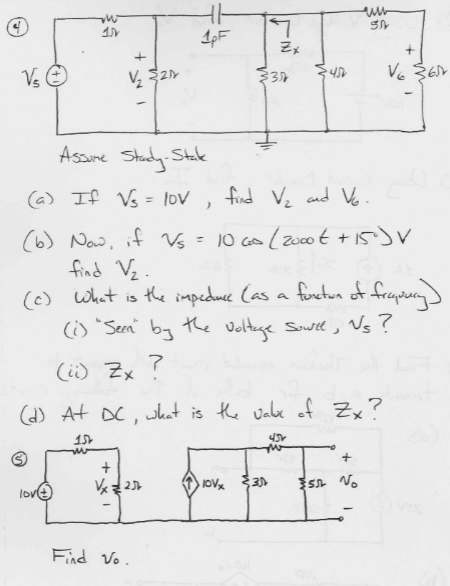 ④
1Ω
1μF
Zx
5Ω
Vs
+
V₂
-
2Ω
3Ω
4Ω
+
V₆
-
6Ω
Assume Steady-State
(a) If Vs = 10V , find V₂ and V₆.
(b) Now, if Vs = 10 cos (2000t + 15°) V
find V₂.
(c) What is the impedance (as a function of frequency)
(i) "Seen" by the voltage source, Vs?
(ii) Zx ?
(d) At DC, what is the value of Zx?
⑤
1Ω
4Ω
10V
+
Vx
-
2Ω
10Vx
3Ω
5Ω
+
Vo
-
Find Vo.